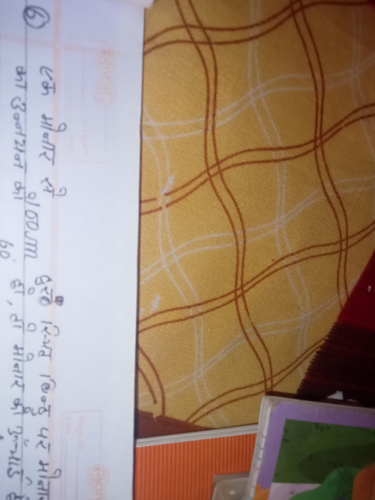 ⑥ एक मीनार से 100m दूर स्थित बिन्दु पर मीनार
का उन्नयन को 60° हो, तो मीनार की ऊँचाई